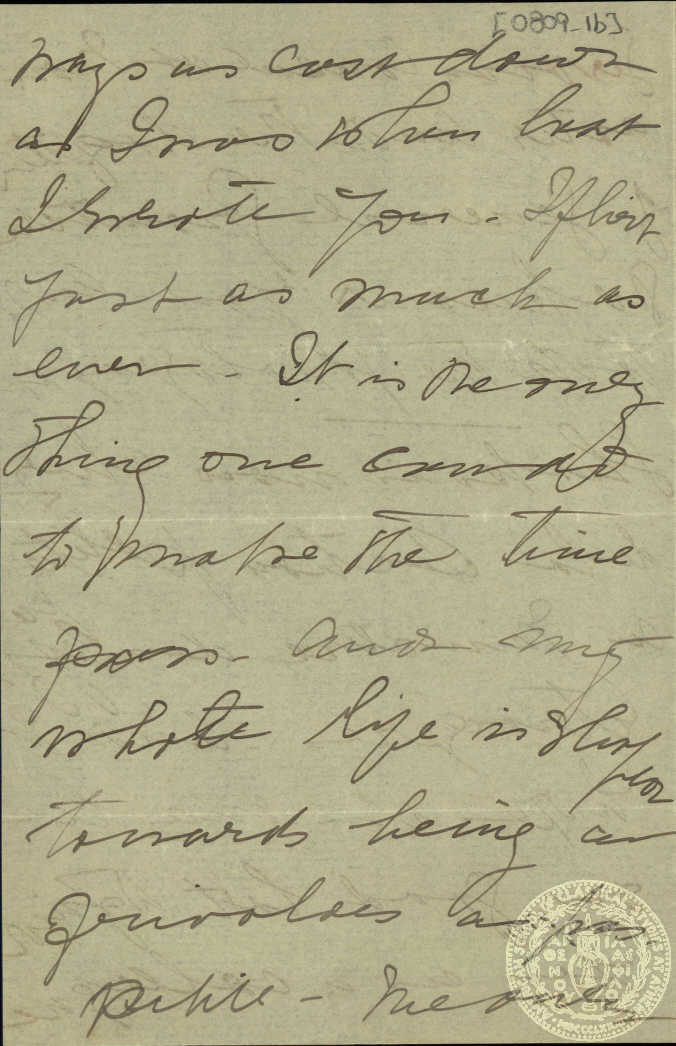 [0809_1b]
ways as cast down
as I was when last
I wrote you - I flirt
just as much as
ever - It is the only
thing one can do
to make the time
pass - and my
whole life is
towards being as
frivolous as pos-
sible - The only